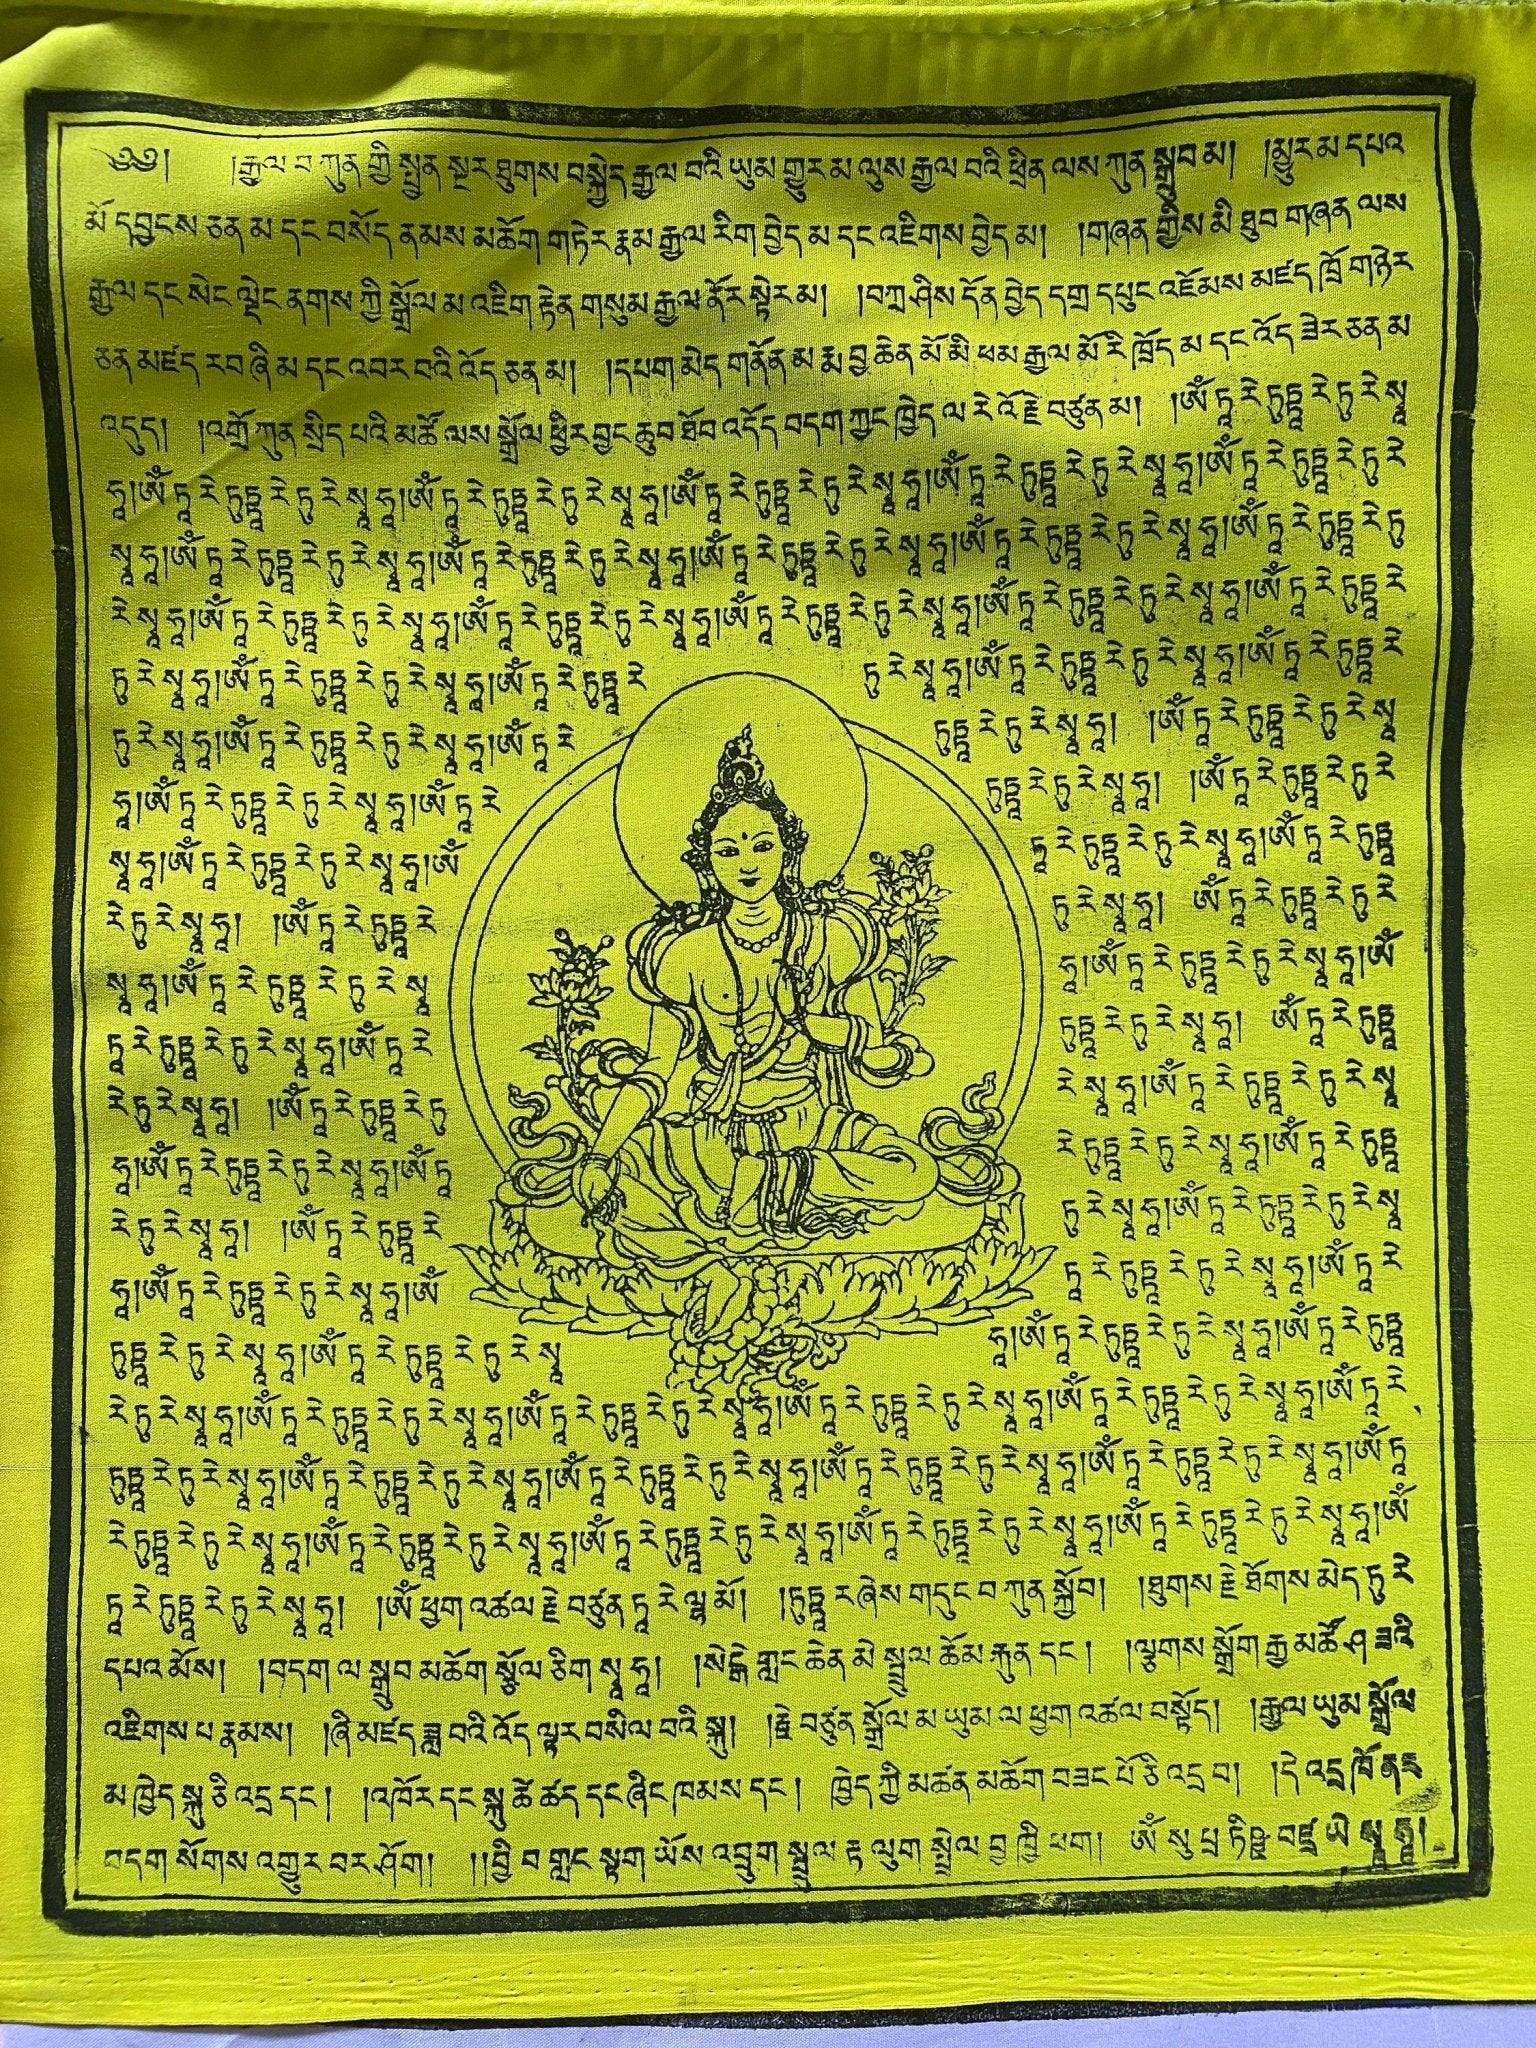 ༄༅། །རྒྱལ་བ་ཀུན་གྱི་སྤྱན་སྔར་ཐུགས་བསྐྱེད་རྒྱལ་བའི་ཡུམ་གྱུར་མ་ལུས་རྒྱལ་བའི་ཕྲིན་ལས་ཀུན་སྒྲུབ་མ། །མྱུར་མ་དཔའ་
མོ་དབྱངས་ཅན་མ་དང་བསོད་ནམས་མཆོག་གཏེར་རྣམ་རྒྱལ་རིག་བྱེད་མ་དང་འཇིགས་བྱེད་མ། །གཞན་གྱིས་མི་ཐུབ་གཞན་ལས་
རྒྱལ་དང་སེང་ལྡེང་ནགས་ཀྱི་སྒྲོལ་མ་འཇིག་རྟེན་གསུམ་རྒྱལ་ནོར་སྟེར་མ། །བཀྲ་ཤིས་དོན་བྱེད་དགྲ་དཔུང་འཇོམས་མཛད་ཁྲོ་གཉེར་
ཅན་མཛད་རབ་ཞི་མ་དང་འབར་བའི་འོད་ཅན་མ། །དཔག་མེད་གནོན་མ་རྨ་བྱ་ཆེན་མོ་མི་ཕམ་རྒྱལ་མོ་རི་ཁྲོད་མ་དང་འོད་ཟེར་ཅན་མ་
འདུད། །འགྲོ་ཀུན་སྲིད་པའི་མཚོ་ལས་སྒྲོལ་ཕྱིར་བྱང་ཆུབ་ཐོབ་འདོད་བདག་ཀྱང་ཁྱེད་ལ་རེ་འོ་རྗེ་བཙུན་མ། །ༀ་ཏཱ་རེ་ཏུཏྟཱ་རེ་ཏུ་རེ་སྭཱ་
ཧཱ།ༀ་ཏཱ་རེ་ཏུཏྟཱ་རེ་ཏུ་རེ་སྭཱ་ཧཱ།ༀ་ཏཱ་རེ་ཏུཏྟཱ་རེ་ཏུ་རེ་སྭཱ་ཧཱ།ༀ་ཏཱ་རེ་ཏུཏྟཱ་རེ་ཏུ་རེ་སྭཱ་ཧཱ།ༀ་ཏཱ་རེ་ཏུཏྟཱ་རེ་ཏུ་རེ་སྭཱ་ཧཱ།ༀ་ཏཱ་རེ་ཏུཏྟཱ་རེ་ཏུ་རེ་
སྭཱ་ཧཱ།ༀ་ཏཱ་རེ་ཏུཏྟཱ་རེ་ཏུ་རེ་སྭཱ་ཧཱ།ༀ་ཏཱ་རེ་ཏུཏྟཱ་རེ་ཏུ་རེ་སྭཱ་ཧཱ།ༀ་ཏཱ་རེ་ཏུཏྟཱ་རེ་ཏུ་རེ་སྭཱ་ཧཱ།ༀ་ཏཱ་རེ་ཏུཏྟཱ་རེ་ཏུ་རེ་སྭཱ་ཧཱ།ༀ་ཏཱ་རེ་ཏུཏྟཱ་རེ་ཏུ་
རེ་སྭཱ་ཧཱ།ༀ་ཏཱ་རེ་ཏུཏྟཱ་རེ་ཏུ་རེ་སྭཱ་ཧཱ།ༀ་ཏཱ་རེ་ཏུཏྟཱ་རེ་ཏུ་རེ་སྭཱ་ཧཱ།ༀ་ཏཱ་རེ་ཏུཏྟཱ་རེ་ཏུ་རེ་སྭཱ་ཧཱ།ༀ་ཏཱ་རེ་ཏུཏྟཱ་རེ་ཏུ་རེ་སྭཱ་ཧཱ།ༀ་ཏཱ་རེ་ཏུཏྟཱ་རེ་
ཏུ་རེ་སྭཱ་ཧཱ།ༀ་ཏཱ་རེ་ཏུཏྟཱ་རེ་ཏུ་རེ་སྭཱ་ཧཱ།ༀ་ཏཱ་རེ་ཏུཏྟཱ་རེ ཏུ་རེ་སྭཱ་ཧཱ།ༀ་ཏཱ་རེ་ཏུཏྟཱ་རེ་ཏུ་རེ་སྭཱ་ཧཱ།ༀ་ཏཱ་རེ་ཏུཏྟཱ་རེ་
ཏུ་རེ་སྭཱ་ཧཱ།ༀ་ཏཱ་རེ་ཏུཏྟཱ་རེ་ཏུ་རེ་སྭཱ་ཧཱ།ༀ་ཏཱ་རེ ཏུཏྟཱ་རེ་ཏུ་རེ་སྭཱ་ཧཱ། །ༀ་ཏཱ་རེ་ཏུཏྟཱ་རེ་ཏུ་རེ་སྭཱ་
ཧཱ།ༀ་ཏཱ་རེ་ཏུཏྟཱ་རེ་ཏུ་རེ་སྭཱ་ཧཱ།ༀ་ཏཱ་རེ ཏུཏྟཱ་རེ་ཏུ་རེ་སྭཱ་ཧཱ། །ༀ་ཏཱ་རེ་ཏུཏྟཱ་རེ་ཏུ་རེ་
སྭཱ་ཧཱ།ༀ་ཏཱ་རེ་ཏུཏྟཱ་རེ་ཏུ་རེ་སྭཱ་ཧཱ།ༀ ཏཱ་རེ་ཏུཏྟཱ་རེ་ཏུ་རེ་སྭཱ་ཧཱ།ༀ་ཏཱ་རེ་ཏུཏྟཱ་
རེ་ཏུ་རེ་སྭཱ་ཧཱ། །ༀ་ཏཱ་རེ་ཏུཏྟཱ་རེ ཏུ་རེ་སྭཱ་ཧཱ། ༀ་ཏཱ་རེ་ཏུཏྟཱ་རེ་ཏུ་རེ་
སྭཱ་ཧཱ།ༀ་ཏཱ་རེ་ཏུཏྟཱ་རེ་ཏུ་རེ་སྭཱ ཧཱ།ༀ་ཏཱ་རེ་ཏུཏྟཱ་རེ་ཏུ་རེ་སྭཱ་ཧཱ།ༀ
ཏཱ་རེ་ཏུཏྟཱ་རེ་ཏུ་རེ་སྭཱ་ཧཱ།ༀ་ཏཱ་རེ ཏུཏྟཱ་རེ་ཏུ་རེ་སྭཱ་ཧཱ། ༀ་ཏཱ་རེ་ཏུཏྟཱ་
རེ་ཏུ་རེ་སྭཱ་ཧཱ། །ༀ་ཏཱ་རེ་ཏུཏྟཱ་རེ་ཏུ རེ་སྭཱ་ཧཱ།ༀ་ཏཱ་རེ་ཏུཏྟཱ་རེ་ཏུ་རེ་སྭཱ་
ཧཱ།ༀ་ཏཱ་རེ་ཏུཏྟཱ་རེ་ཏུ་རེ་སྭཱ་ཧཱ།ༀ་ཏཱ རེ་ཏུཏྟཱ་རེ་ཏུ་རེ་སྭཱ་ཧཱ།ༀ་ཏཱ་རེ་ཏུཏྟཱ་
རེ་ཏུ་རེ་སྭཱ་ཧཱ། །ༀ་ཏཱ་རེ་ཏུཏྟཱ་རེ ཏུ་རེ་སྭཱ་ཧཱ།ༀ་ཏཱ་རེ་ཏུཏྟཱ་རེ་ཏུ་རེ་སྭཱ་
ཧཱ།ༀ་ཏཱ་རེ་ཏུཏྟཱ་རེ་ཏུ་རེ་སྭཱ་ཧཱ།ༀ ཏཱ་རེ་ཏུཏྟཱ་རེ་ཏུ་རེ་སྭཱ་ཧཱ།ༀ་ཏཱ་རེ་
ཏུཏྟཱ་རེ་ཏུ་རེ་སྭཱ་ཧཱ།ༀ་ཏཱ་རེ་ཏུཏྟཱ་རེ་ཏུ་རེ་སྭཱ ཧཱ།ༀ་ཏཱ་རེ་ཏུཏྟཱ་རེ་ཏུ་རེ་སྭཱ་ཧཱ།ༀ་ཏཱ་རེ་ཏུཏྟཱ་
རེ་ཏུ་རེ་སྭཱ་ཧཱ།ༀ་ཏཱ་རེ་ཏུཏྟཱ་རེ་ཏུ་རེ་སྭཱ་ཧཱ།ༀ་ཏཱ་རེ་ཏུཏྟཱ་རེ་ཏུ་རེ་སྭཱ་ཧཱ།ༀ་ཏཱ་རེ་ཏུཏྟཱ་རེ་ཏུ་རེ་སྭཱ་ཧཱ།ༀ་ཏཱ་རེ་ཏུཏྟཱ་རེ་ཏུ་རེ་སྭཱ་ཧཱ།ༀ་ཏཱ་རེ་
ཏུཏྟཱ་རེ་ཏུ་རེ་སྭཱ་ཧཱ།ༀ་ཏཱ་རེ་ཏུཏྟཱ་རེ་ཏུ་རེ་སྭཱ་ཧཱ།ༀ་ཏཱ་རེ་ཏུཏྟཱ་རེ་ཏུ་རེ་སྭཱ་ཧཱ།ༀ་ཏཱ་རེ་ཏུཏྟཱ་རེ་ཏུ་རེ་སྭཱ་ཧཱ།ༀ་ཏཱ་རེ་ཏུཏྟཱ་རེ་ཏུ་རེ་སྭཱ་ཧཱ།ༀ་ཏཱ་
རེ་ཏུཏྟཱ་རེ་ཏུ་རེ་སྭཱ་ཧཱ།ༀ་ཏཱ་རེ་ཏུཏྟཱ་རེ་ཏུ་རེ་སྭཱ་ཧཱ།ༀ་ཏཱ་རེ་ཏུཏྟཱ་རེ་ཏུ་རེ་སྭཱ་ཧཱ།ༀ་ཏཱ་རེ་ཏུཏྟཱ་རེ་ཏུ་རེ་སྭཱ་ཧཱ།ༀ་ཏཱ་རེ་ཏུཏྟཱ་རེ་ཏུ་རེ་སྭཱ་ཧཱ།ༀ
ཏཱ་རེ་ཏུཏྟཱ་རེ་ཏུ་རེ་སྭཱ་ཧཱ། །ༀ་ཕྱག་འཚལ་རྗེ་བཙུན་ཏཱ་རེ་ལྷ་མོ། །ཏུཏྟཱ་ར་ཞེས་གདུང་བ་ཀུན་སྐྱོབ། །ཐུགས་རྗེ་ཐོགས་མེད་ཏུ་རེ་
དཔའ་མོས། །བདག་ལ་སྒྲུབ་མཆོག་སྩོལ་ཅིག་སྭཱ་ཧཱ། །སེངྒེ་གླང་ཆེན་མེ་སྦྲུལ་ཆོམ་རྐུན་དང་། །ལྕགས་སྒྲོག་རྒྱ་མཚོ་ཤ་ཟའི་
འཇིགས་པ་རྣམས། །ཞི་མཛད་ཟླ་བའི་འོད་ལྟར་བསིལ་བའི་སྐུ། །རྗེ་བཙུན་སྒྲོལ་མ་ཡུམ་ལ་ཕྱག་འཚལ་བསྟོད། །རྒྱལ་ཡུམ་སྒྲོལ་
མ་ཁྱེད་སྐུ་ཅི་འདྲ་དང་། །འཁོར་དང་སྐུ་ཚེ་ཚད་དང་ཞིང་ཁམས་དང་། ཁྱེད་ཀྱི་མཚན་མཆོག་བཟང་པོ་ཅི་འདྲ་བ། །དེ་འདྲ་ཁོ་ནར་
བདག་སོགས་འགྱུར་བར་ཤོག། །།བྱི་བ་གླང་སྟག་ཡོས་འབྲུག་སྦྲུལ་རྟ་ལུག་སྤྲེལ་བྱ་ཁྱི་ཕག། ༀ་སུ་པྲ་ཏིཥྛ་བཛྲ་ཡེ་སྭཱ་ཧཱ།